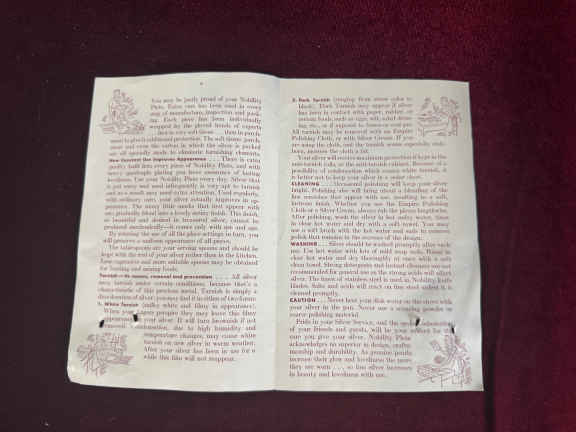 You may be justly proud of your Nobility
Plate. Extra care has been used in every
step of manufacture, inspection and pack-
ing. Each piece has been individually
wrapped by the gloved hands of experts
first in very soft tissue . . . then in parch-
ment to give it additional protection. The soft tissue, parch-
ment and even the carton in which the silver is packed
are all specially made to eliminate tarnishing elements.
How Constant Use Improves Appearance . . . . There is extra
quality built into every piece of Nobility Plate, and with
heavy quadruple plating you have assurance of lasting
loveliness. Use your Nobility Plate every day. Silver that
is put away and used infrequently is very apt to tarnish
and as a result may need extra attention. Used regularly,
with ordinary care, your silver actually improves in ap-
pearance. The many little marks that first appear with
use gradually blend into a lovely satiny finish. This finish,
so beautiful and desired in treasured silver, cannot be
produced mechanically—it comes only with use and age.
By rotating the use of all the place settings in turn, you
will preserve a uniform appearance of all pieces.
The tablespoons are your serving spoons and should be
kept with the rest of your silver rather than in the kitchen.
Less expensive and more suitable spoons may be obtained
for basting and mixing foods.
Tarnish—its causes, removal and prevention . . . . All silver
may tarnish under certain conditions, because that's a
characteristic of this precious metal. Tarnish is simply a
discoloration of silver; you may find it in either of two forms:
1. White Tarnish (milky white and filmy in appearance).
When your
appear on your silver. It will turn brownish if not
removed. Condensation, due to high humidity and
temperature changes, may cause white
tarnish on new silver in warm weather.
After your silver has been in use for a
while this film will not reappear.
2. Dark Tarnish (ranging from straw color to
black). Dark Tarnish may appear if silver
has been in contact with paper, rubber, or
certain foods, such as eggs, salt, salad dress-
ing, etc., or if exposed to fumes or coal gas.
All tarnish may be removed with an Empire
Polishing Cloth, or with Silver Cream. If you
are using the cloth, and the tarnish seems especially stub-
born, moisten the cloth a bit.
Your silver will receive maximum protection if kept in the
anti-tarnish rolls, or the anti-tarnish cabinet. Because of a
possibility of condensation which causes white tarnish, it
is better not to keep your silver in a cedar chest.
CLEANING . . . Occasional polishing will keep your silver
bright. Polishing also will bring about a blending of the
first scratches that appear with use, resulting in a soft,
lustrous finish. Whether you use the Empire Polishing
Cloth or a Silver Cream, always rub the pieces lengthwise.
After polishing, wash the silver in hot soapy water, rinse
in clear hot water and dry with a soft towel. You may
use a soft brush with the hot water and suds to remove
polish that remains in the recesses of the design.
WASHING . . . Silver should be washed promptly after each
use. Use hot water with lots of mild soap suds. Rinse in
clear hot water and dry thoroughly at once with a soft
clean towel. Strong detergents and instant cleansers are not
recommended for general use as the strong acids will affect
silver. The finest of stainless steel is used in Nobility knife
blades. Salts and acids will react on fine steel unless it is
cleaned promptly.
CAUTION . . . Never heat your dish water on the stove with
your silver in the pan. Never use a scouring powder or
coarse polishing material.
Pride in your Silver Service, and the open admiration
of your friends and guests, will be your reward for the
care you give your silver. Nobility Plate
acknowledges no superior in design, crafts-
manship and durability. As genuine pearls
increase their glow and loveliness the more
they are worn . . . so fine silver increases
in beauty and loveliness with use.